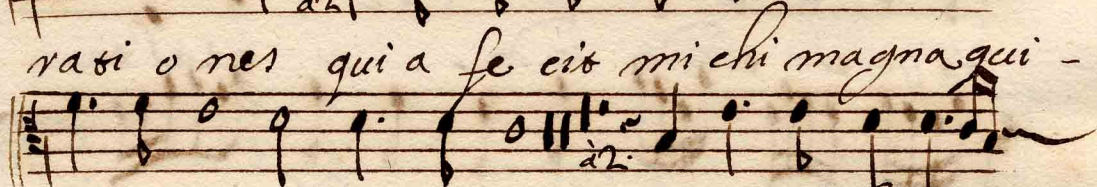 à2
rati o nes qui a fe cit mi chi magna qui -
à2.